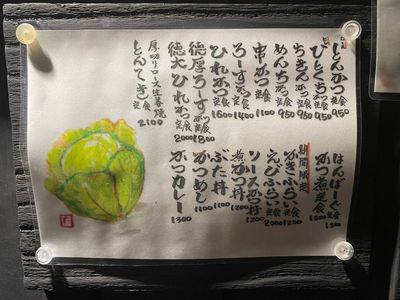 とんかつ定食 950
ひとくちかつ定食 950
ちきんかつ定食 950
めんちかつ定食 950
串かつ定食 1100
ろーすかつ定食 1400
ひれかつ定食 1600
徳厚ろーすかつ定食 1800
徳大ひれかつ定食 2000
厚切りロース生姜焼
とんてき定食 2100
はんばーぐ定食
かつ煮定食
期間限定
かきふらい定食
えびふらい定食 2000
ソースかつ丼 1200
煮かつ丼 1200
ぶた丼 1100
かつめし 1100
かつカレー 1300